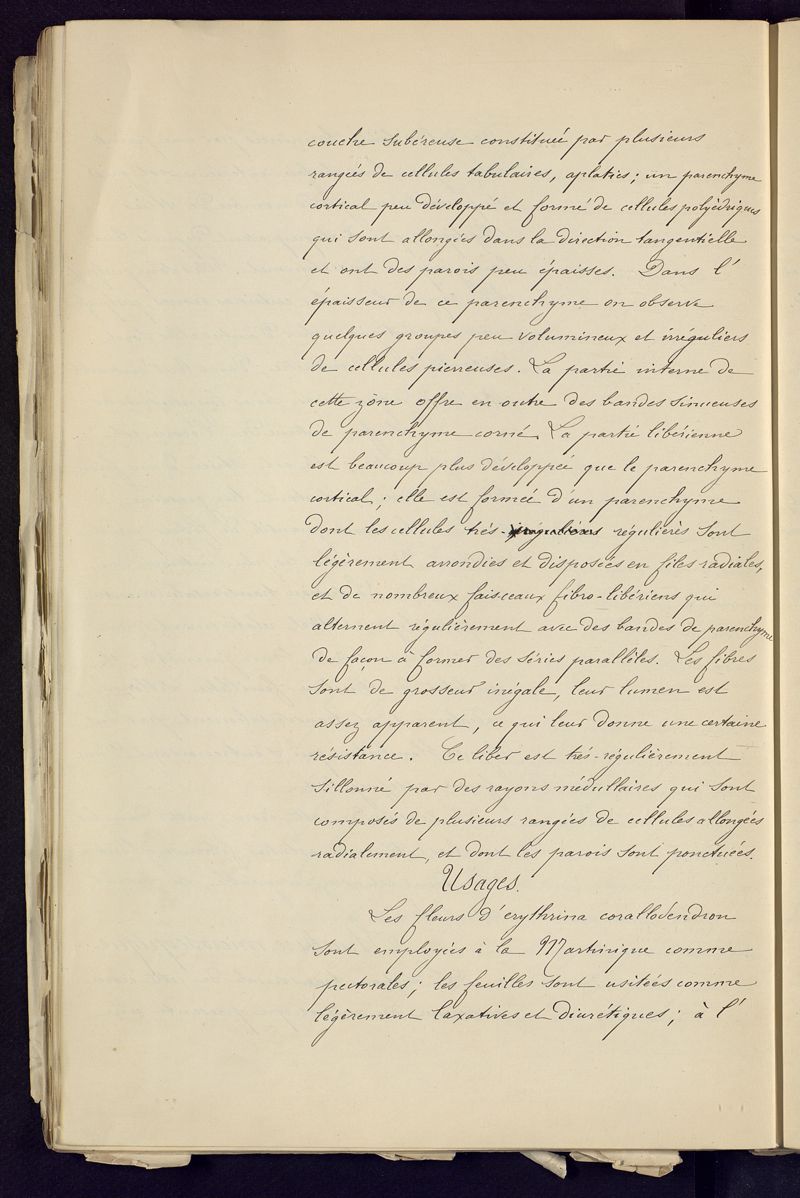 couche subéreuse constituée par plusieurs
rangées de cellules tabulaires, aplaties; un parenchyme
cortical peu développé et formé de cellules polyédriques
qui sont allongées dans la direction tangentielle
et ont des parois peu épaisses. Dans l'
épaisseur de ce parenchyme on observe
quelques groupes peu volumineux et irréguliers
de cellules pierreuses. La partie interne de
cette zône offre en outre des bandes sinueuses
de parenchyme corné. La partie libérienne
est beaucoup plus développée que le parenchyme
cortical; elle est formée d'un parenchyme
dont les cellules très-irrégulières régulières sont
légèrement arrondies et disposées en files radiales,
et de nombreux faisceaux fibro-libériens qui
alternent régulièrement avec des bandes de parenchyme
de façon à former des séries parallèles. Les fibres
sont de grosseur inégale, leur lumen est
assez apparent, ce qui leur donne une certaine
résistance. Ce liber est très-régulièrement
sillonné par des rayons médullaires qui sont
composés de plusieurs rangées de cellules allongées
radialement, et dont les parois sont ponctuées.
Usages.
Les fleurs d'erythrina corallodendron
sont employées à la Martinique comme
pectorales; les feuilles sont usitées comme
légèrement laxatives et diurétiques; à l'